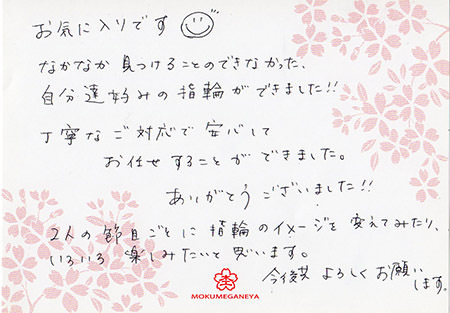 お気に入りです
なかなか見つけることのできなかった、
自分達好みの指輪ができました!!
丁寧なご対応で安心して
お任せすることができました。
ありがとうございました!!
2人の節目ごとに指輪のイメージを変えてみたり、
いろいろ楽しみたいと思います。
今後共よろしくお願い
します。
MOKUMEGANEYA